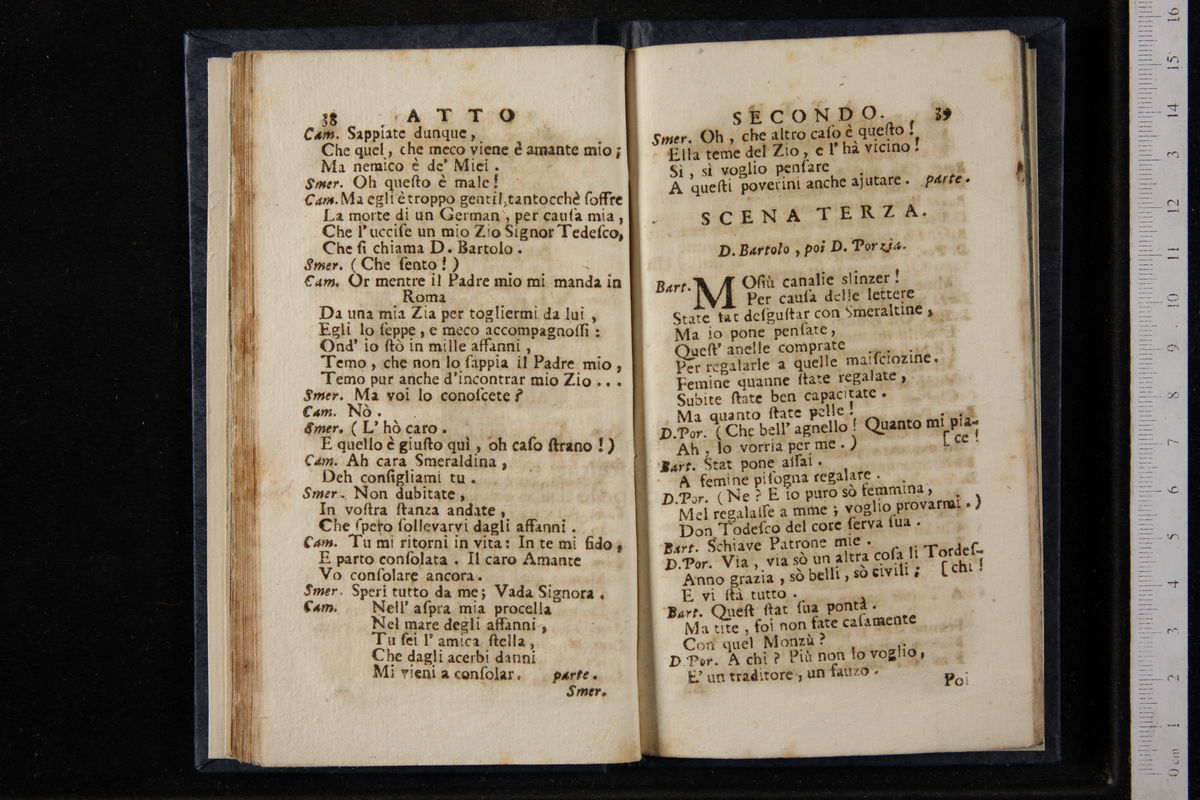 38 ATTO
Cam. Sappiate dunque,
Che quel, che meco viene è amante mio;
Ma nemico è de' Miei.
Smer. Oh queſto è male!
Cam. Ma egli è troppo gentil, tantocchè ſoffre
La morte di un German, per cauſa mia,
Che l'ucciſe un mio Zio Signor Tedeſco,
Che ſi chiama D. Bartolo.
Smer. (Che ſento!)
Cam. Or mentre il Padre mio mi manda in
Roma
Da una mia Zia per togliermi da lui,
Egli lo ſeppe, e meco accompagnoſſi:
Ond' io ſtò in mille affanni,
Temo, che non lo ſappia il Padre mio,
Temo pur anche d'incontrar mio Zio...
Smer. Ma voi lo conoſcete?
Cam. Nò.
Smer. (L'hò caro.
E quello è giuſto quì, oh caſo ſtrano!)
Cam. Ah cara Smeraldina,
Deh conſigliami tu.
Smer. Non dubitate,
In voſtra ſtanza andate,
Che ſpero ſollevarvi dagli affanni.
Cam. Tu mi ritorni in vita: In te mi fido,
E parto conſolata. Il caro Amante
Vo conſolare ancora.
Smer. Speri tutto da me; Vada Signora.
Cam. Nell' aſpra mia procella
Nel mare degli affanni,
Tu ſei l' amica ſtella,
Che dagli acerbi danni
Mi vieni a conſolar. parte.
Smer.
SECONDO. 39
Smer. Oh, che altro caſo è queſto!
Ella teme del Zio, e l'hà vicino!
Sì, sì voglio penſare
A queſti poverini anche ajutare. parte.
SCENA TERZA.
D. Bartolo, poi D. Porzia.
Bart. MOſiù canalie slinzer!
Per cauſa delle lettere
State tat deſguſtar con Smeraltine,
Ma io pone penſate,
Queſt' anelle comprate
Per regalarle a quelle maiſciozine.
Femine quanne ſtate regalate,
Subite ſtate ben capacitate.
Ma quanto ſtate pelle!
D.Por. (Che bell' agnello! Quanto mi pia-
Ah, lo vorria per me.) [ce!
Bart. Stat pone aſſai.
A femine piſogna regalare.
D.Por. (Ne? E io puro sò femmina,
Mel regalaſſe a mme; voglio provarmi.)
Don Todeſco del core ſerva ſua.
Bart. Schiave Patrone mie.
D.Por. Via, via sò un altra coſa li Tordeſ-
Anno grazia, sò belli, sò civili; [chi!
E vi ſtà tutto.
Bart. Queſt ſtat ſua pontà.
Ma tite, foi non fate caſamente
Con quel Monzù?
D.Por. A chi? Più non lo voglio,
E' un traditore, un fauzo.
Poi